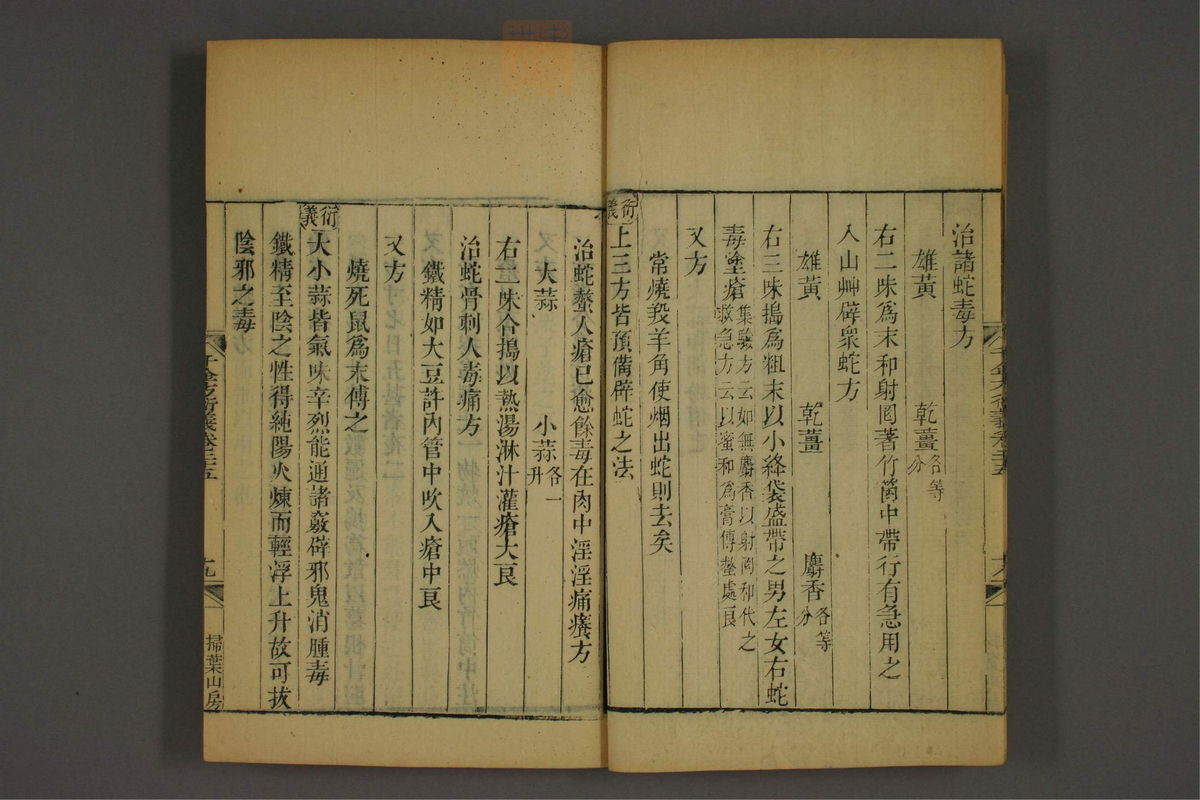 治諸蛇毒方
雄黃 乾薑各等分
右二味爲末和射罔著竹筒中帶行有急用之
入山艸辟衆蛇方
雄黃 乾薑 麝香各等分
右三味搗爲粗末以小絳袋盛帶之男左女右蛇
毒塗瘡集驗方云如無麝香以射罔和代之救急方云以蜜和爲膏傅螫處良
又方
常燒羖羊角使烟出蛇則去矣
衍義上三方皆預備辟蛇之法
治蛇螫人瘡已愈餘毒在肉中淫淫痛癢方
大蒜 小蒜各一升
右二味合搗以熱湯淋汁灌瘡大良
治蛇骨刺人毒痛方
鐵精如大豆許內管中吹入瘡中良
又方
燒死鼠爲末傅之
衍義大小蒜皆氣味辛烈能通諸竅辟邪鬼消腫毒
鐵精至陰之性得純陽火煉而輕浮上升故可拔
陰邪之毒
千金方衍義卷二十五
九
掃葉山房